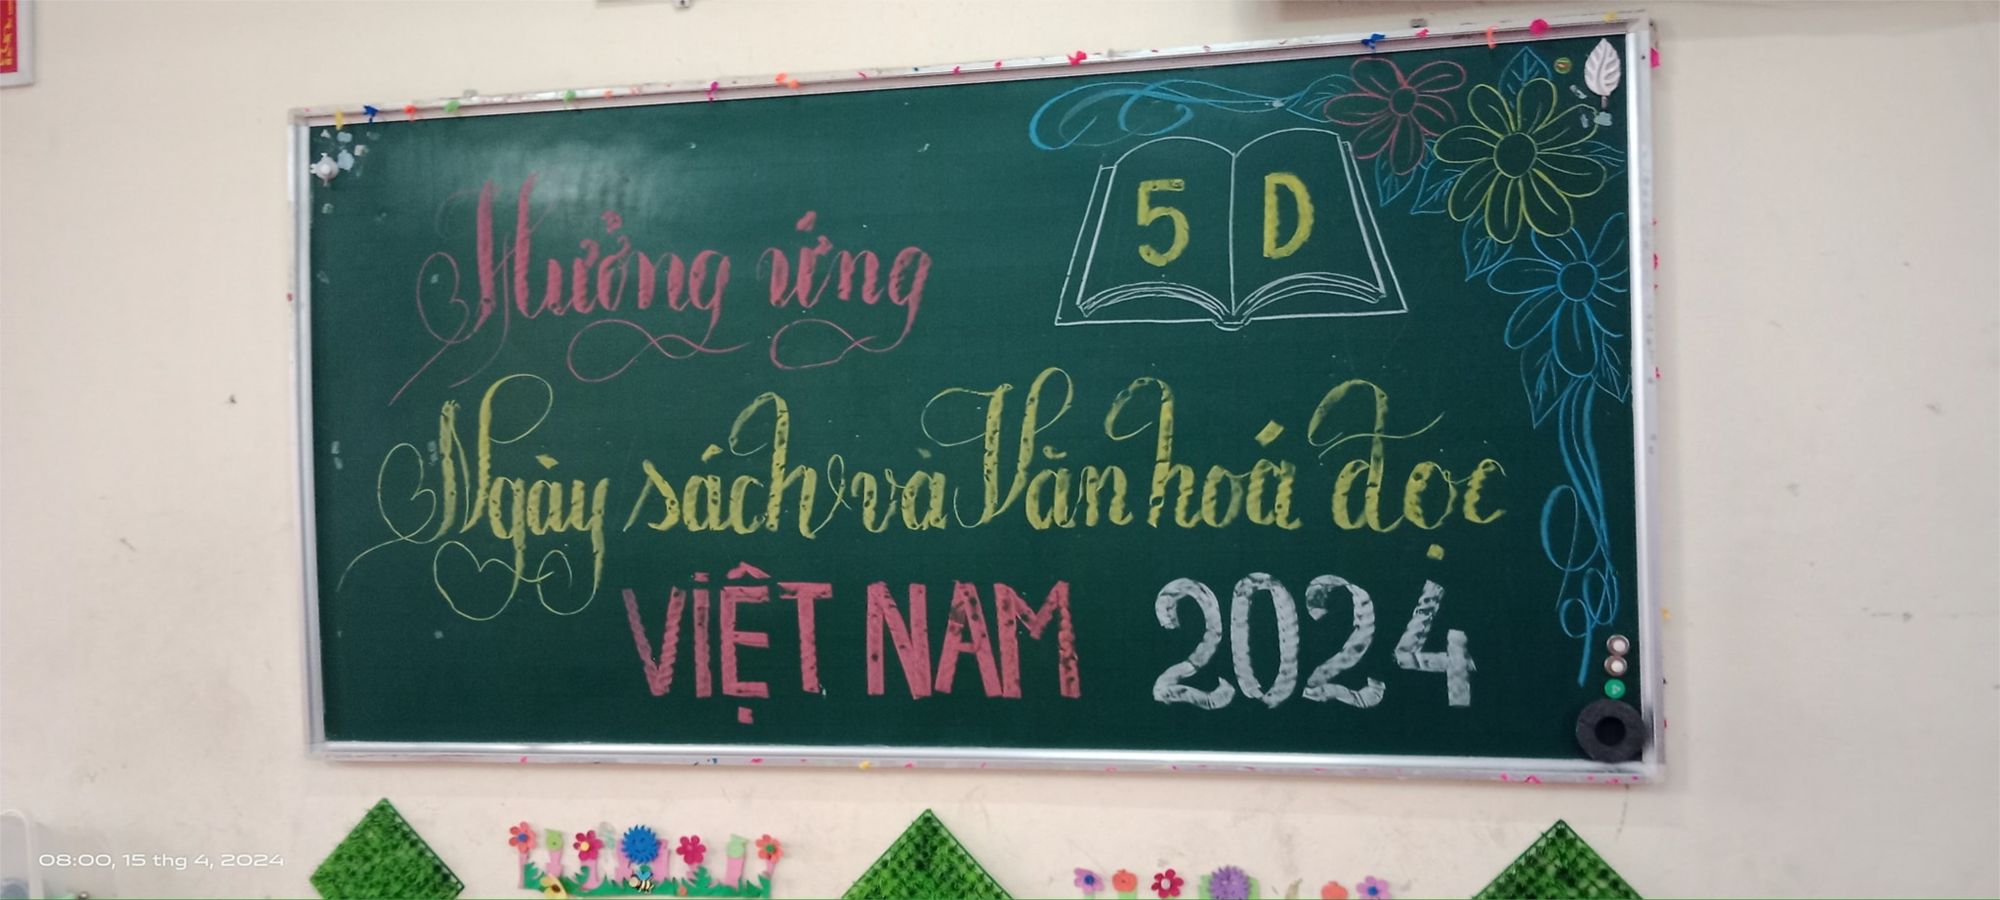 Hưởng ứng
5 D
Ngày sách và Văn hoá đọc
VIỆT NAM 2024
08:00, 15 thg 4, 2024